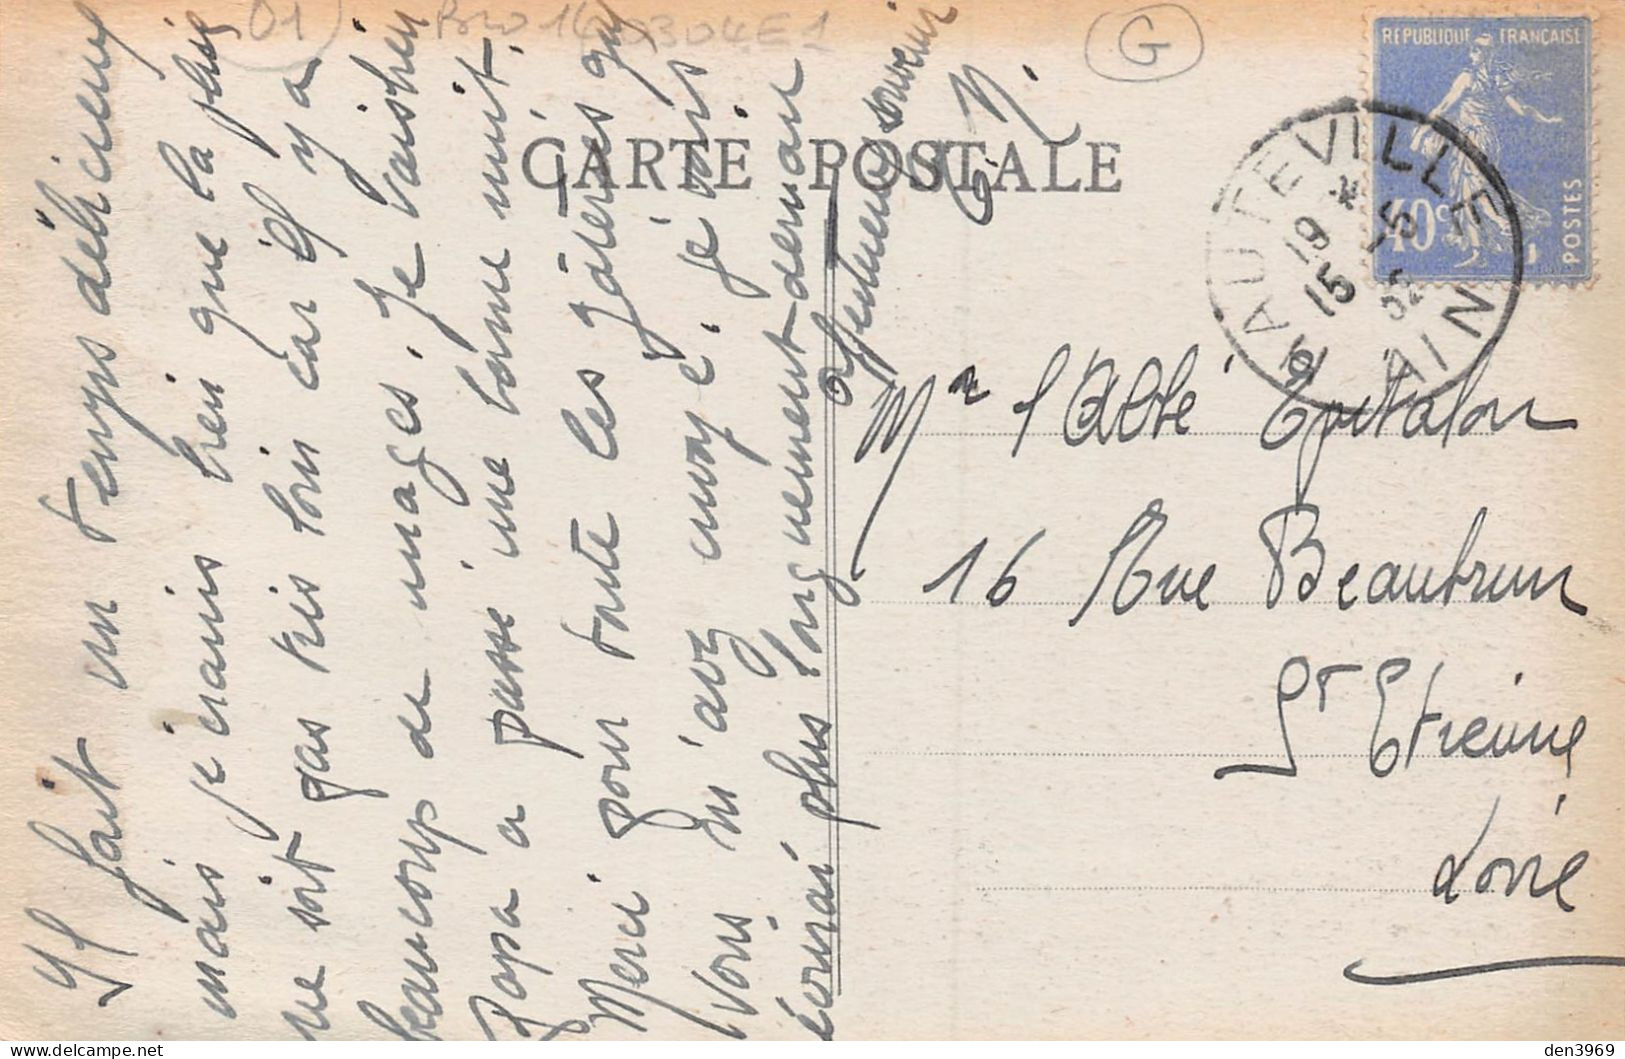 Il fait un temps délicieux
mais je crains bien que la pluie
ne soit pas très loin car il y a
beaucoup de nuages. Je vais bien
Papa a passé une bonne nuit.
Merci pour toute les gâteries que
vous m'avez envoyé. je vous
écrirai plus longuement demain
Affectueux souvenir
01)
0304E1
G
CARTE POSTALE
REPUBLIQUE FRANÇAISE
40c
POSTES
HAUTEVILLE
AIN
19 *
15 -5
32
Mr l'Abbé Epitalon
16 Rue Beaubrun
St Etienne
Loire
den3969